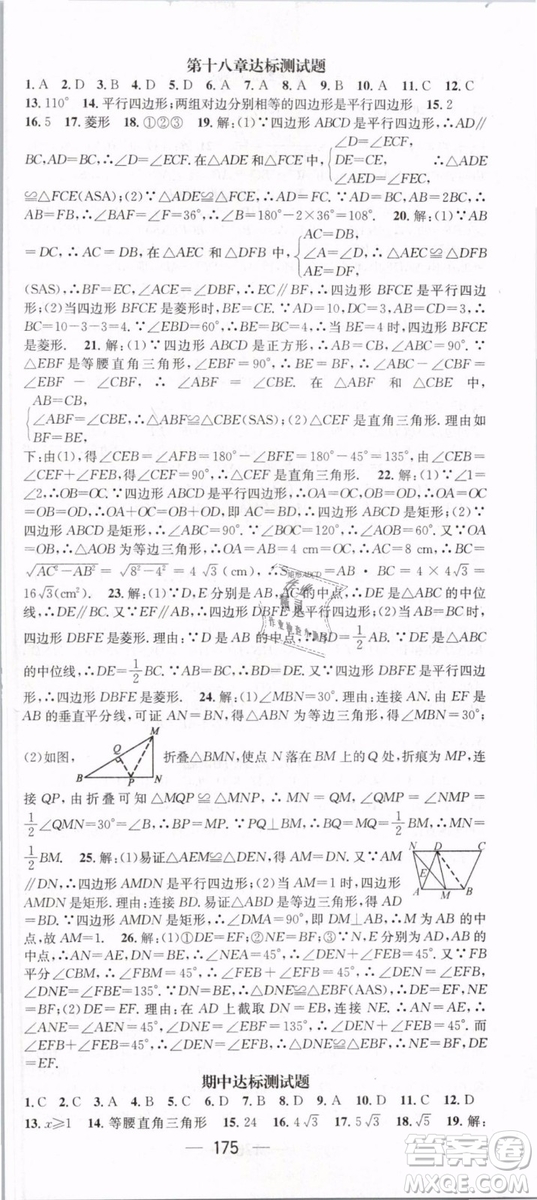 第十八章达标测试题
1. A 2. D 3. B 4. D 5. D 6. A 7. A 8. B 9. B 10. A 11. C 12. C
13. 110° 14. 平行四边形;两组对边分别相等的四边形是平行四边形 15. 2
16. 5 17. 菱形 18. ①②③ 19. 解:(1)∵四边形 ABCD 是平行四边形,∴AD∥
BC,AD=BC,∴∠D=∠ECF. 在△ADE 和△FCE 中{∠D=∠ECF, DE=CE, ∠AED=∠FEC,∴△ADE
≌△FCE(ASA);(2)∵△ADE≌△FCE,∴AD=FC,∵AD=BC,AB=2BC,∴
AB=FB,∴∠BAF=∠F=36°,∴∠B=180°-2×36°=108°. 20. 解:(1)∵AB
=DC,∴AC=DB,在△AEC 和△DFB 中{AC=DB, ∠A=∠D, AE=DF,∴△AEC≌△DFB
(SAS),∴BF=EC,∠ACE=∠DBF,∴EC∥BF,∴四边形 BFCE 是平行四边
形;(2)当四边形 BFCE 是菱形时,BE=CE. ∵AD=10,DC=3,AB=CD=3,∴BC
=10-3-3=4,∵∠EBD=60°,∴BE=BC=4,∴当 BE=4 时,四边形 BFCE
是菱形. 21. 解:(1)∵四边形 ABCD 是正方形,∴AB=CB,∠ABC=90°. ∵
△EBF 是等腰直角三角形,∴∠EBF=90°,∴BE=BF,∴∠ABC-∠CBF=
∠EBF-∠CBF,∴∠ABF=∠CBE. 在△ABF 和△CBE 中,
{AB=CB, ∠ABF=∠CBE, BF=BE,∴△ABF≌△CBE(SAS);(2)△CEF 是直角三角形. 理由如
下:由(1),得∠CEB=∠AFB=180°-∠BFE=180°-45°=135°,由(1),得
∠CEF+∠FEB,得∠CEF=90°,∴△CEF 是直角三角形. 22. 解:(1)∵∠1=
∠2,∴OB=OC. ∵四边形 ABCD 是平行四边形,∴OA=OC,OB=OD,∴OA=
OB=OC=OD,∴OA+OC=OB+OD,即 AC=BD. ∴四边形 ABCD 是矩形;(2)
∵四边形 ABCD 是矩形,∴OA=OB. ∵∠BOC=120°,∴∠AOB=60°. 又∵OA
=OB,∴△OAB 是等边三角形,∴OA=AB=4(cm),∴AC=2OA=8(cm),∴BC=
√AC²-AB²=√8²-4²=4√3(cm),∴S矩形ABCD=AB·BC=4×4√3=
16√3(cm²). 23. 解:(1)∵D,E 分别是 AB,AC 的中点,∴DE 是△ABC 的中位
线,∴DE∥BC. 又∵EF∥AB,∴四边形 DBFE 是平行四边形;(2)当 AB=BC 时,四
边形 DBFE 是菱形. 理由:∵D 是 AB 的中点,∴BD=1/2AB,∵DE 是△ABC
的中位线,∴DE=1/2BC,∵AB=BC,∴BD=DE. 又∵四边形 DBFE 是平行四边形,
∴四边形 DBFE 是菱形. 24. 解:(1)∠MBN=30°. 理由:连接 AN. 由 EF 是
AB 的垂直平分线,可证 AN=BN,得△ABN 为等边三角形,得∠MBN=30°;
(2)如图, 折叠△BMN,使点 N 落在 BM 上的 Q 处,折痕为 MP,连
接 QP,由折叠可知△MQP≌△MNP,∴MN=MQ,∠NMP=∠QMP=
1/2∠QMN=30°=∠B,∴BP=MP. ∵PQ⊥BM,∴BQ=MQ=MN,∴MN=
1/2BM. 25. 解:(1)易证△AEM≌△DEN,∴AM=DN. 又∵AM
∥DN,∴四边形 AMDN 是平行四边形;(2)当 AM=1 时,四边形
AMDN 是矩形. 理由:连接 BD. 易证△ABD 为等边三角形,∴AB
=DB. ∵四边形 AMDN 是矩形,∴∠DMA=90°,∴AM=MB,∴点 M 是 AB 的中
点,故 AM=1. 26. 解:(1)①DE=EF;②NE=BF;③∵N,E 分别为 AD,AB 的
中点,∴AN=DN=1/2AD,AE=EB=1/2AB,∴DN=BE,AN=AE. ∵BF 平
分∠CBM,∴∠FBM=45°,∴∠EFB+∠FEB=45°. 又∵∠DEA+∠FEB=90°,
∠ADE+∠DEA=90°,∴∠ADE=∠FEB. 又∵∠ANE=∠AEN=45°,∴
∠DNE=∠FBE=135°,∴△DNE≌△EBF,∴DE=EF,NE=BF;(2)在 AD 上截
取 DN=EB,连接 NE,则 DE=EF. 理由:在 AD 上截取 DN=EB,∴AN=AE,
∴∠ANE=∠AEN=45°,∠ADE+∠DEN=45°. 又∵∠DEN+∠FEB=45°,而
∠EFB+∠FEB=45°,∴∠DEN=∠EFB,∴△DNE≌△EBF,∴DE=
EF.
期中达标测试题
1. C 2. D 3. D 4. C 5. C 6. B 7. D 8. C 9. B 10. D 11. C 12. D
13. x≥1 14. 等腰直角三角形 15. 24 16. 4√3 17. 5√3 18. ①②④ 19. 解:
175